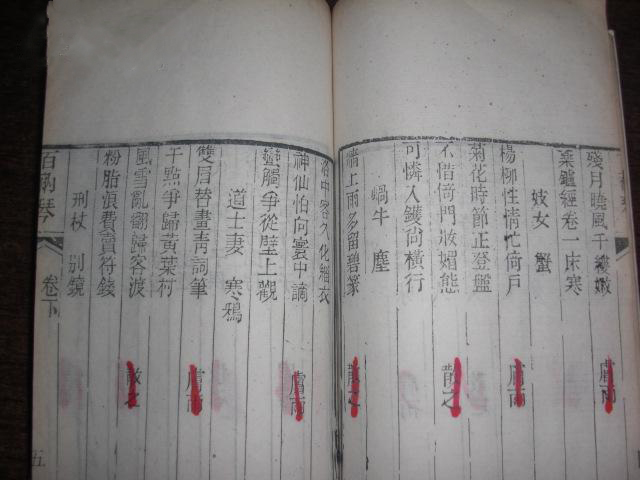 殘月曉風千縷嫩 膚雨
鑪經卷一床寒
妓女 蟹
楊柳性情忙倚戶 膚雨
菊花時節正登盤
不惜倚門妝媚態 散之
可憐入鑊尚橫行
蝸牛 塵
牆上雨多留碧篆 散之
洛中客久化緇衣
神仙怕向雲中謫 膚雨
蠻觸爭從壁上觀
道士妻 寒鴉
雙眉替畫青詞筆 膚雨
千點爭歸黃葉村
風雪亂翻歸客渡 散之
粉脂浪費賣符錢
刑杖 別鏡
百衲琴 卷下 五